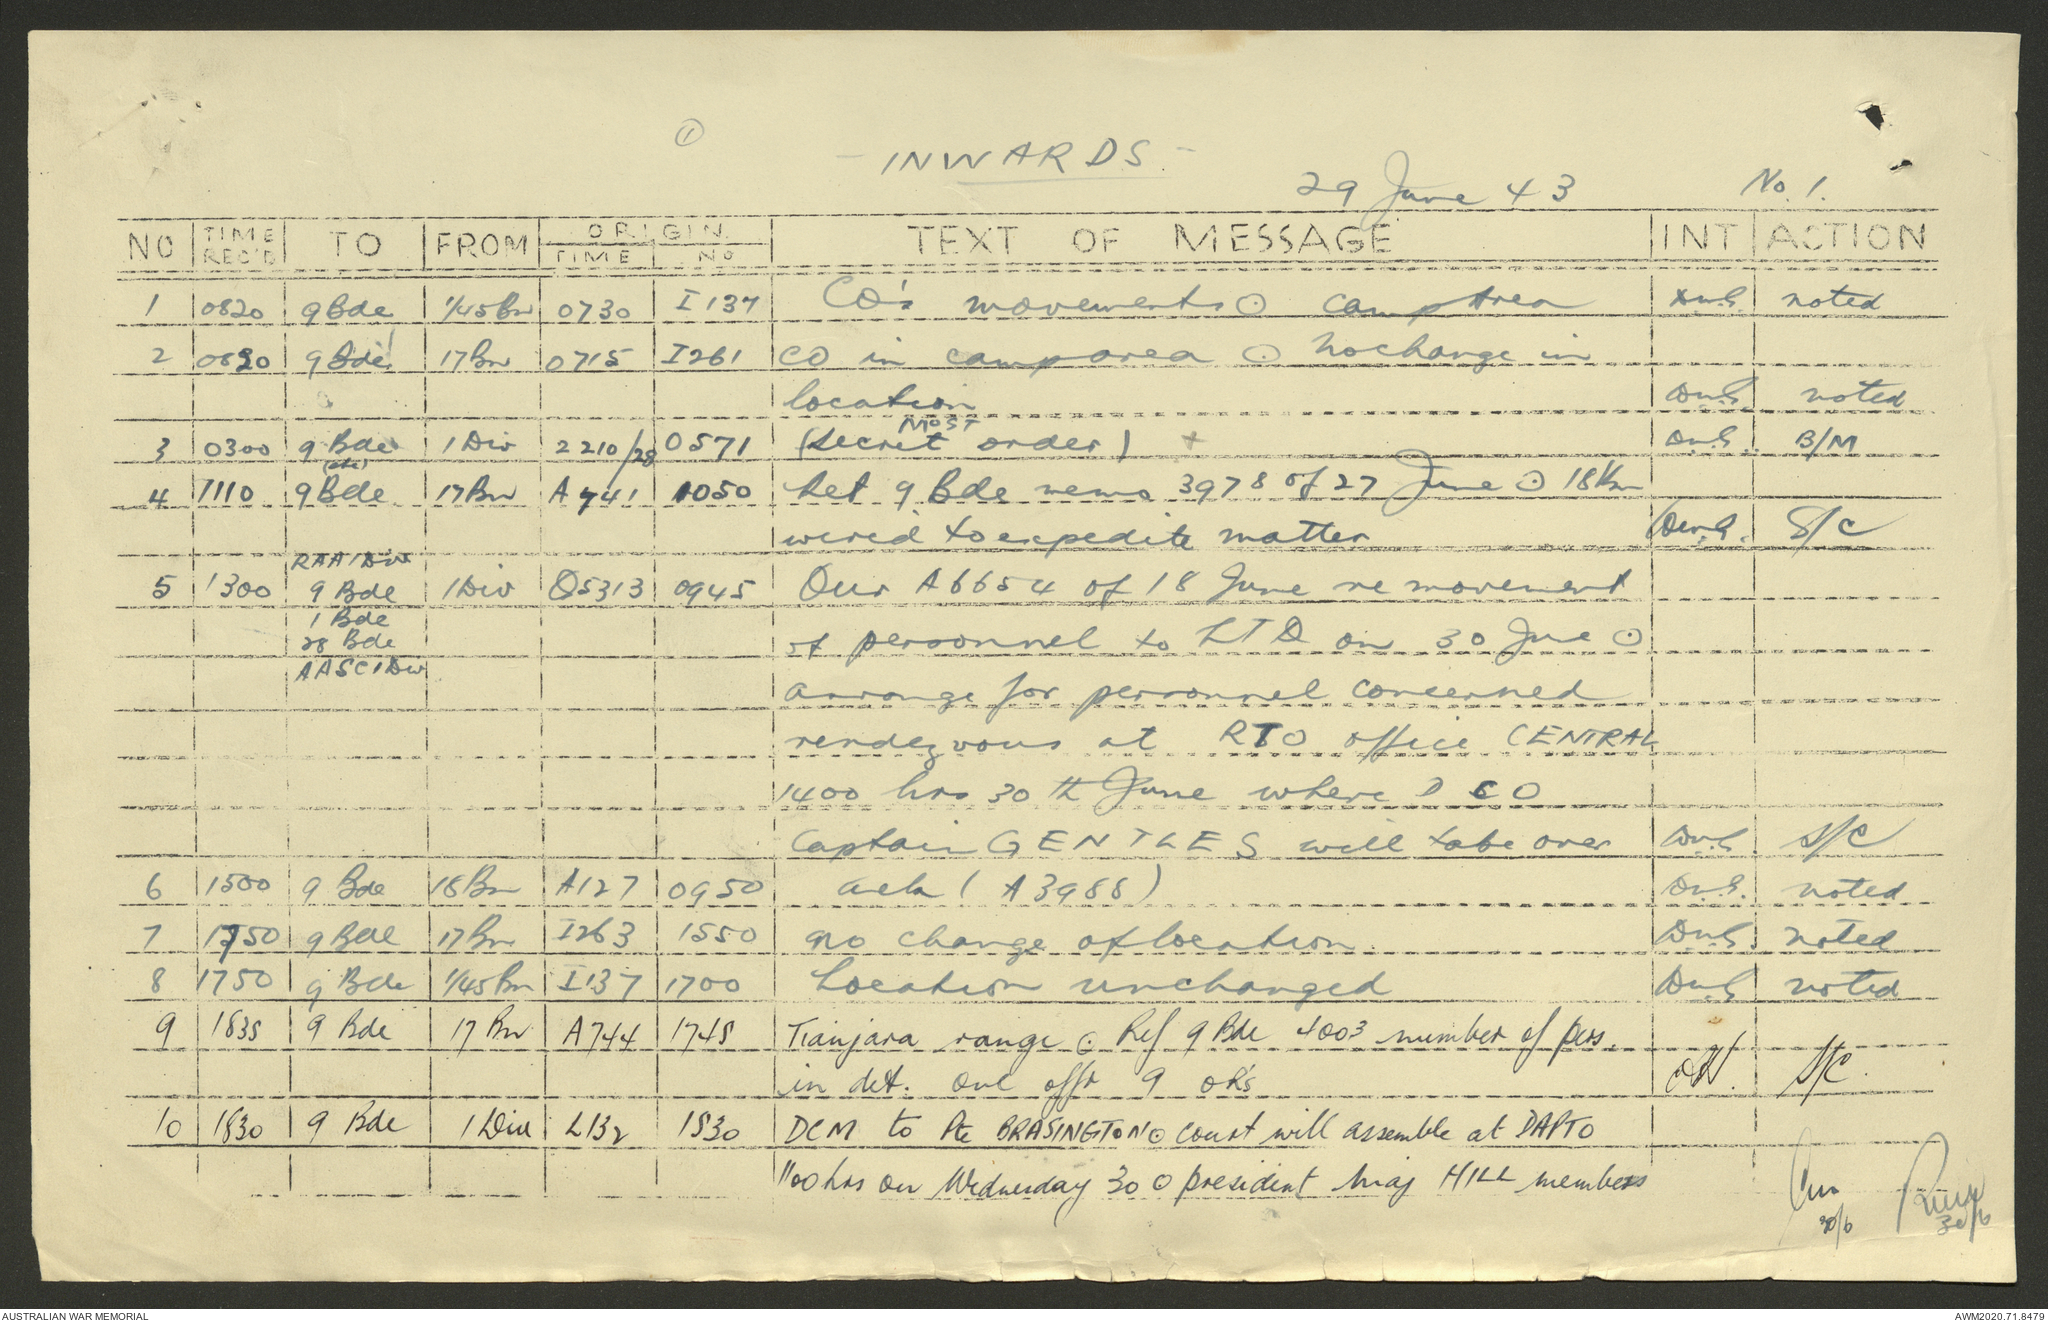 ①
- INWARDS -
29 June 43 No. 1.
NO TIME REC'D TO FROM ORIGIN TIME NO TEXT OF MESSAGE INT ACTION
1 0820 9 Bde 1/45 Bn 0730 I 137 CO's movements ⊙ camp area noted
2 0820 9 Bde 17 Bn 0715 I 261 CO in camp area ⊙ No change in
location noted
MOST
3 0300 9 Bde 1 Div 2210/28 0571 (secret order) + B/M
4 1110 9 Bde 17 Bn A 741 1050 Let 9 Bde memo 3978 of 27 June ⊙ 18 Bn
wired to expedite matter S/C
RAA 1 Div
5 1300 9 Bde 1 Div Q5313 0945 Our A6654 of 18 June re movement
1 Bde
28 Bde of personnel to LTD on 30 June ⊙
AASC 1 Div
arrange for personnel concerned
rendezvous at RTO office CENTRAL
1400 hrs 30 th June where D CO
Captain GENTLES will take over S/C
6 1500 9 Bde 18 Bn A127 0950 ack (A3988) noted
7 1750 9 Bde 17 Bn I263 1550 No change of location noted
8 1750 9 Bde 1/45 Bn I137 1700 Location unchanged noted
9 1835 9 Bde 17 Bn A744 1745 Tianjara range ⊙ Ref 9 Bde 4003 number of pers.
in det. one offr 9 ORs S/C.
10 1830 9 Bde 1 Div L132 1530 DCM to Pte BRASINGTON ⊙ court will assemble at DAPTO
1100 hrs on Wednesday 30 ⊙ president Maj HILL members
30/6 30/6
AUSTRALIAN WAR MEMORIAL AWM2020.71.8479